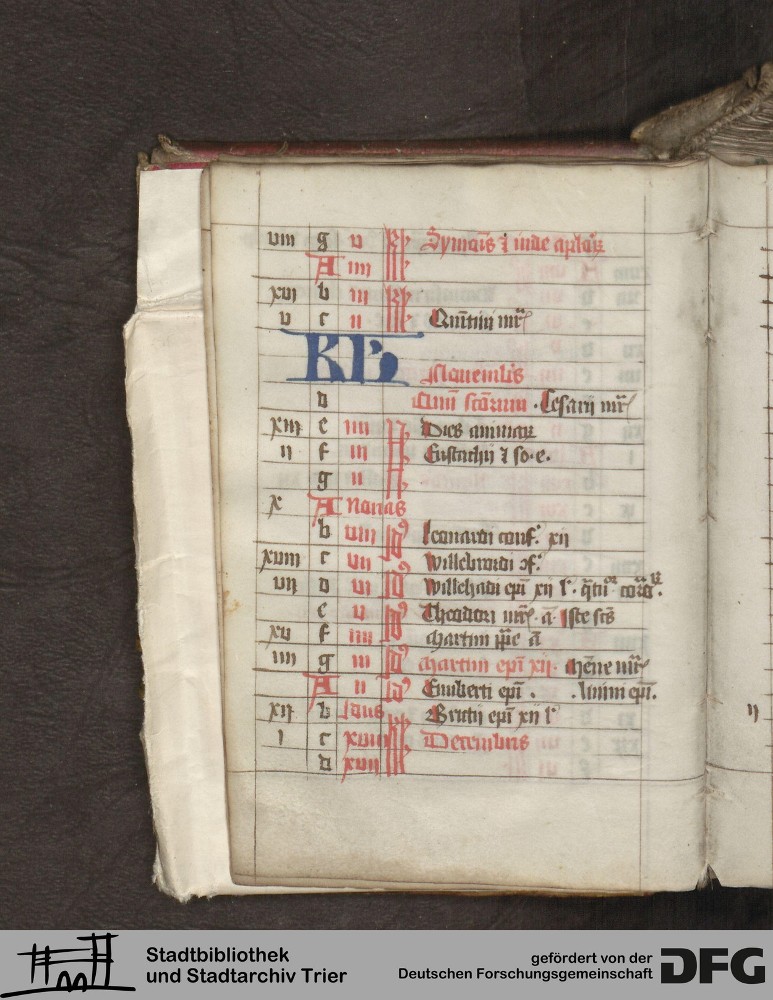 viii g v kl Symōis ⁊ iude aplōꝝ
A iiii kl
xvi b iii kl
v c ii kl Quītini mr̄
KL
Nouembris
d Oīm sctōrum · Cesarij mr̄
xiii e iiii N Dies animaꝝ
ii f iii N Eustachij ⁊ so· e·
g ii N
x A Nonas
b viii Idꝰ leonardi conf. xii
xviii c vii Idꝰ willebrordi ꝯf.
vii d vi Idꝰ willehadi epī xii l·
e v Idꝰ Theodori mr̄· a̅ Iste sctūs
xv f iiii Idꝰ Martini pp̄e a̅
iiii g iii Idꝰ Martini epī xii· Mēne mr̄
A ii Idꝰ Cuniberti epī · epī·
xii b Idus Brictij epī xii l·
i c xviii kl Decembris
d xvii kl
ij
Stadtbibliothek
und Stadtarchiv Trier
gefördert von der
Deutschen Forschungsgemeinschaft
DFG